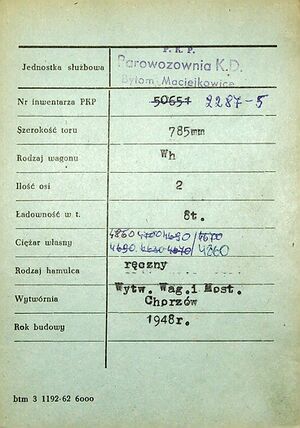 P. K. P.
Jednostka służbowa Parowozownia K.D.
Bytom Maciejkowice
Nr inwentarza PKP 50651 2287-5
Szerokość toru 785mm
Rodzaj wagonu Wh
Ilość osi 2
Ładowność w t. 8t.
4850 4700 4690/4670
Ciężar własny 4690 4670/4860
Rodzaj hamulca ręczny
Wytwórnia Wytw. Wag.i Most.
Chorzów
Rok budowy 1948r.
btm 3 1192-62 6000